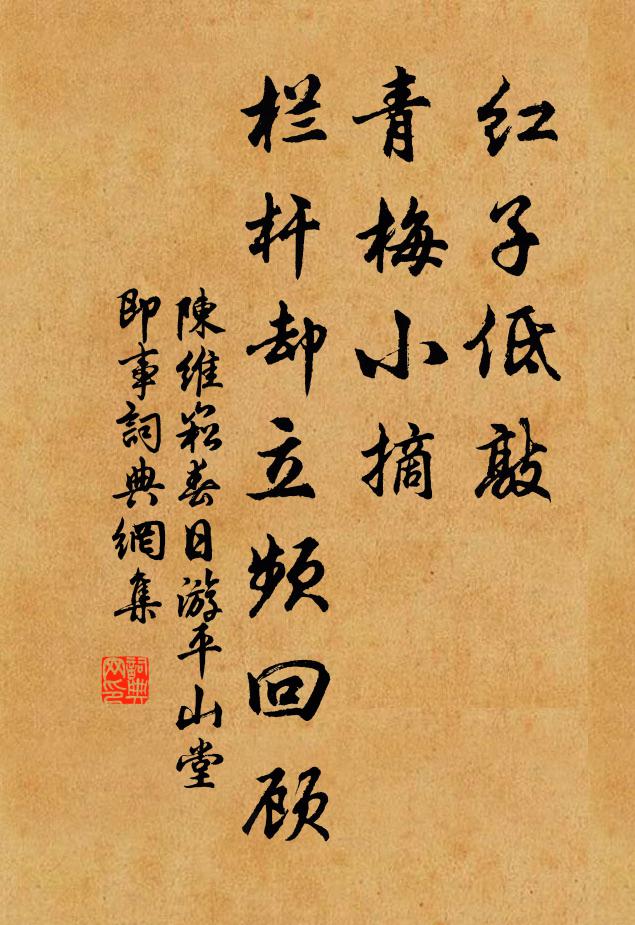 红子低敲
青梅小摘
栏杆却立频回顾
陳維崧春日游平山堂
即事詞典網集
詞典網印